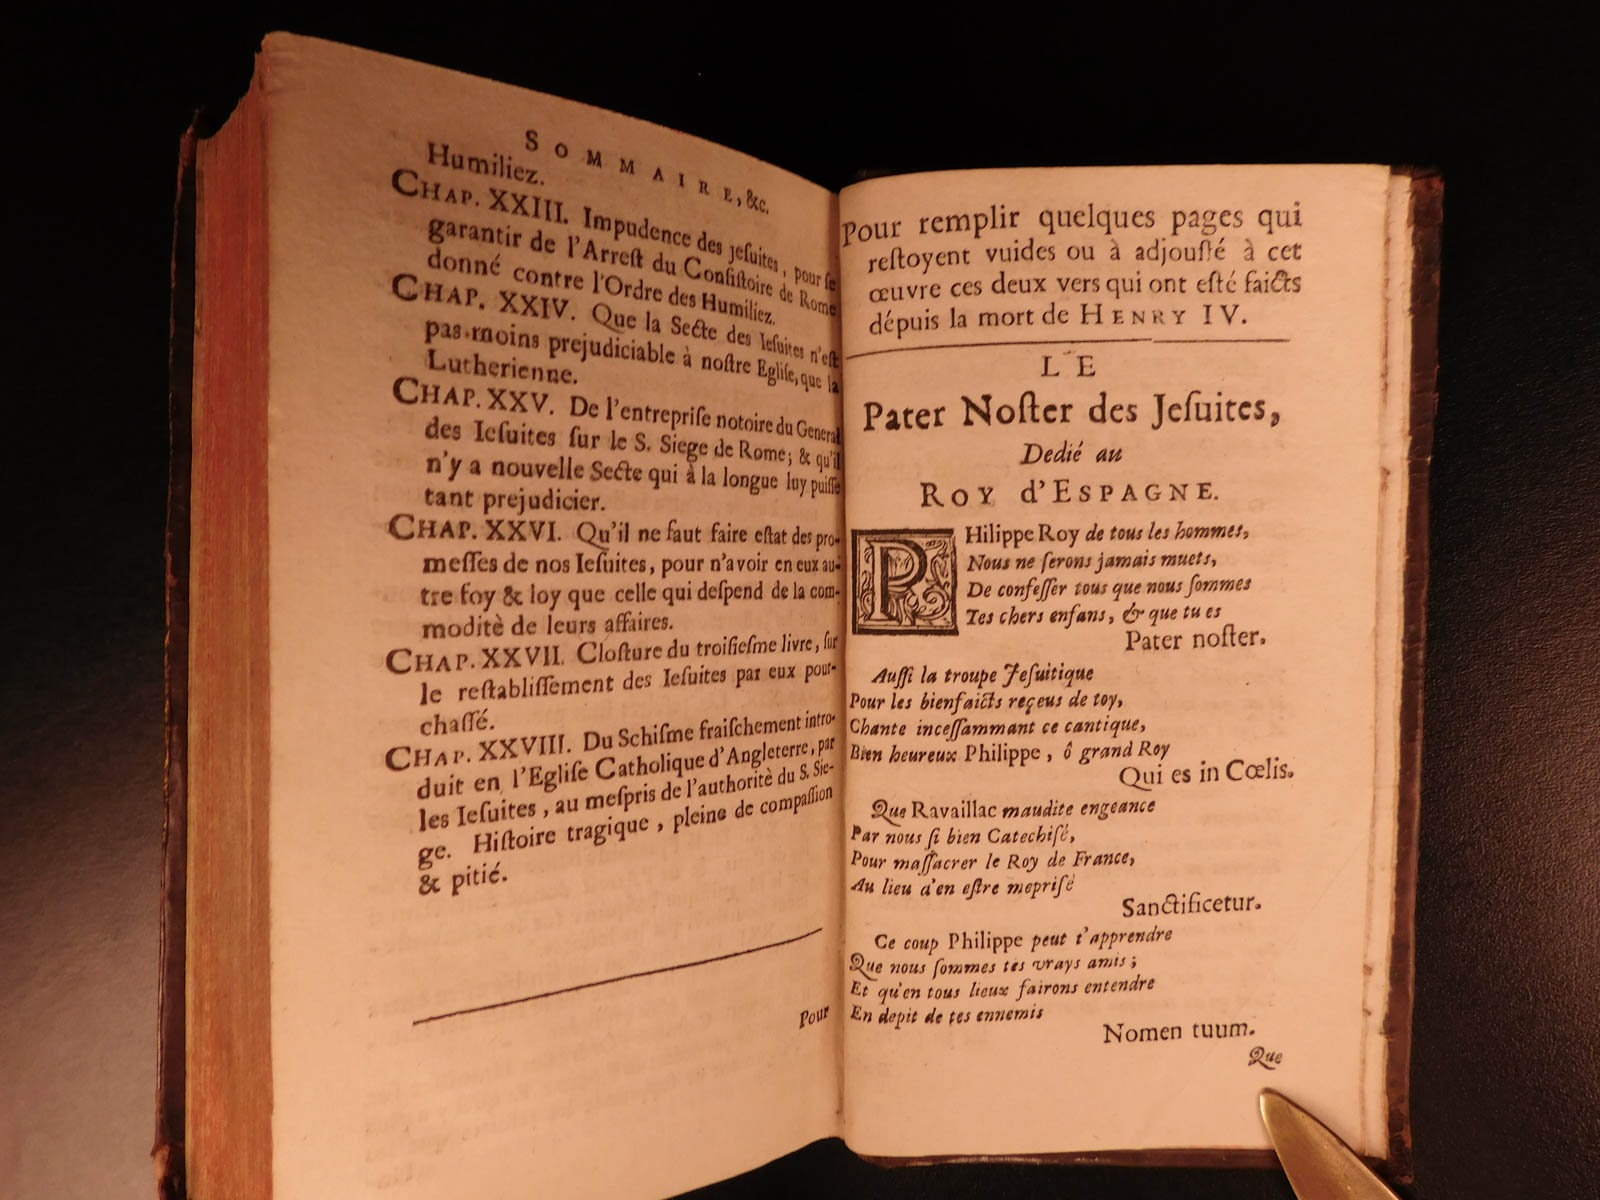 SOMMAIRE, &c.
Humiliez.
CHAP. XXIII. Impudence des jeſuites, pour ſe
garantir de l'Arreſt du Conſiſtoire de Rome
donné contre l'Ordre des Humiliez.
CHAP. XXIV. Que la Secte des Ieſuites n'eſt
pas moins prejudiciable à noſtre Egliſe, que la
Lutherienne.
CHAP. XXV. De l'entrepriſe notoire du General
des Ieſuites ſur le S. Siege de Rome; & qu'il
n'y a nouvelle Secte qui à la longue luy puiſſe
tant prejudicier.
CHAP. XXVI. Qu'il ne faut faire eſtat des pro-
meſſes de nos Ieſuites, pour n'avoir en eux au-
tre foy & loy que celle qui deſpend de la com-
moditè de leurs affaires.
CHAP. XXVII. Cloſture du troiſieſme livre, ſur
le reſtabliſſement des Ieſuites par eux pour-
chaſſé.
CHAP. XXVIII. Du Schiſme fraiſchement intro-
duit en l'Egliſe Catholique d'Angleterre, par
les Ieſuites, au meſpris de l'authoritè du S. Sie-
ge. Hiſtoire tragique, pleine de compaſſion
& pitié.
Pour
Pour remplir quelques pages qui
reſtoyent vuides ou à adjouſté à cet
œuvre ces deux vers qui ont eſté faicts
dépuis la mort de HENRY IV.
LE
Pater Noſter des Jeſuites,
Dedié au
ROY d'ESPAGNE.
PHilippe Roy de tous les hommes,
Nous ne ſerons jamais muets,
De confeſſer tous que nous ſommes
Tes chers enfans, & que tu es
Pater noſter.
Auſſi la troupe Jeſuitique
Pour les bienfaicts reçeus de toy,
Chante inceſſammant ce cantique,
Bien heureux Philippe, ô grand Roy
Qui es in Cœlis.
Que Ravaillac maudite engeance
Par nous ſi bien Catechiſé,
Pour maſſacrer le Roy de France,
Au lieu d'en eſtre mepriſé
Sanctificetur.
Ce coup Philippe peut t'apprendre
Que nous ſommes tes vrays amis;
Et qu'en tous lieux fairons entendre
En depit de tes ennemis
Nomen tuum.
Que